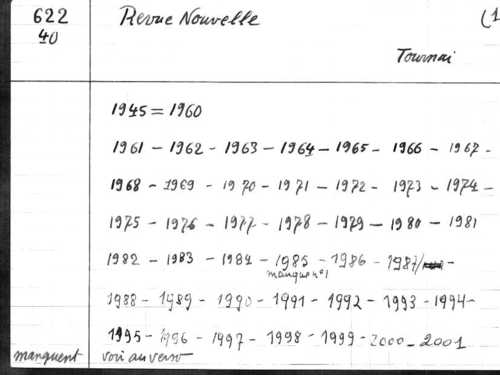 622 Revue Nouvelle (1
40
Tournai
1945 = 1960
1961 - 1962 - 1963 - 1964 - 1965 - 1966 - 1967 -
1968 - 1969 - 1970 - 1971 - 1972 - 1973 - 1974 -
1975 - 1976 - 1977 - 1978 - 1979 - 1980 - 1981
1982 - 1983 - 1984 - 1985 - 1986 - 1987/ -
manque n°1
1988 - 1989 - 1990 - 1991 - 1992 - 1993 - 1994 -
1995 - 1996 - 1997 - 1998 - 1999 - 2000 - 2001
manquent voir au verso